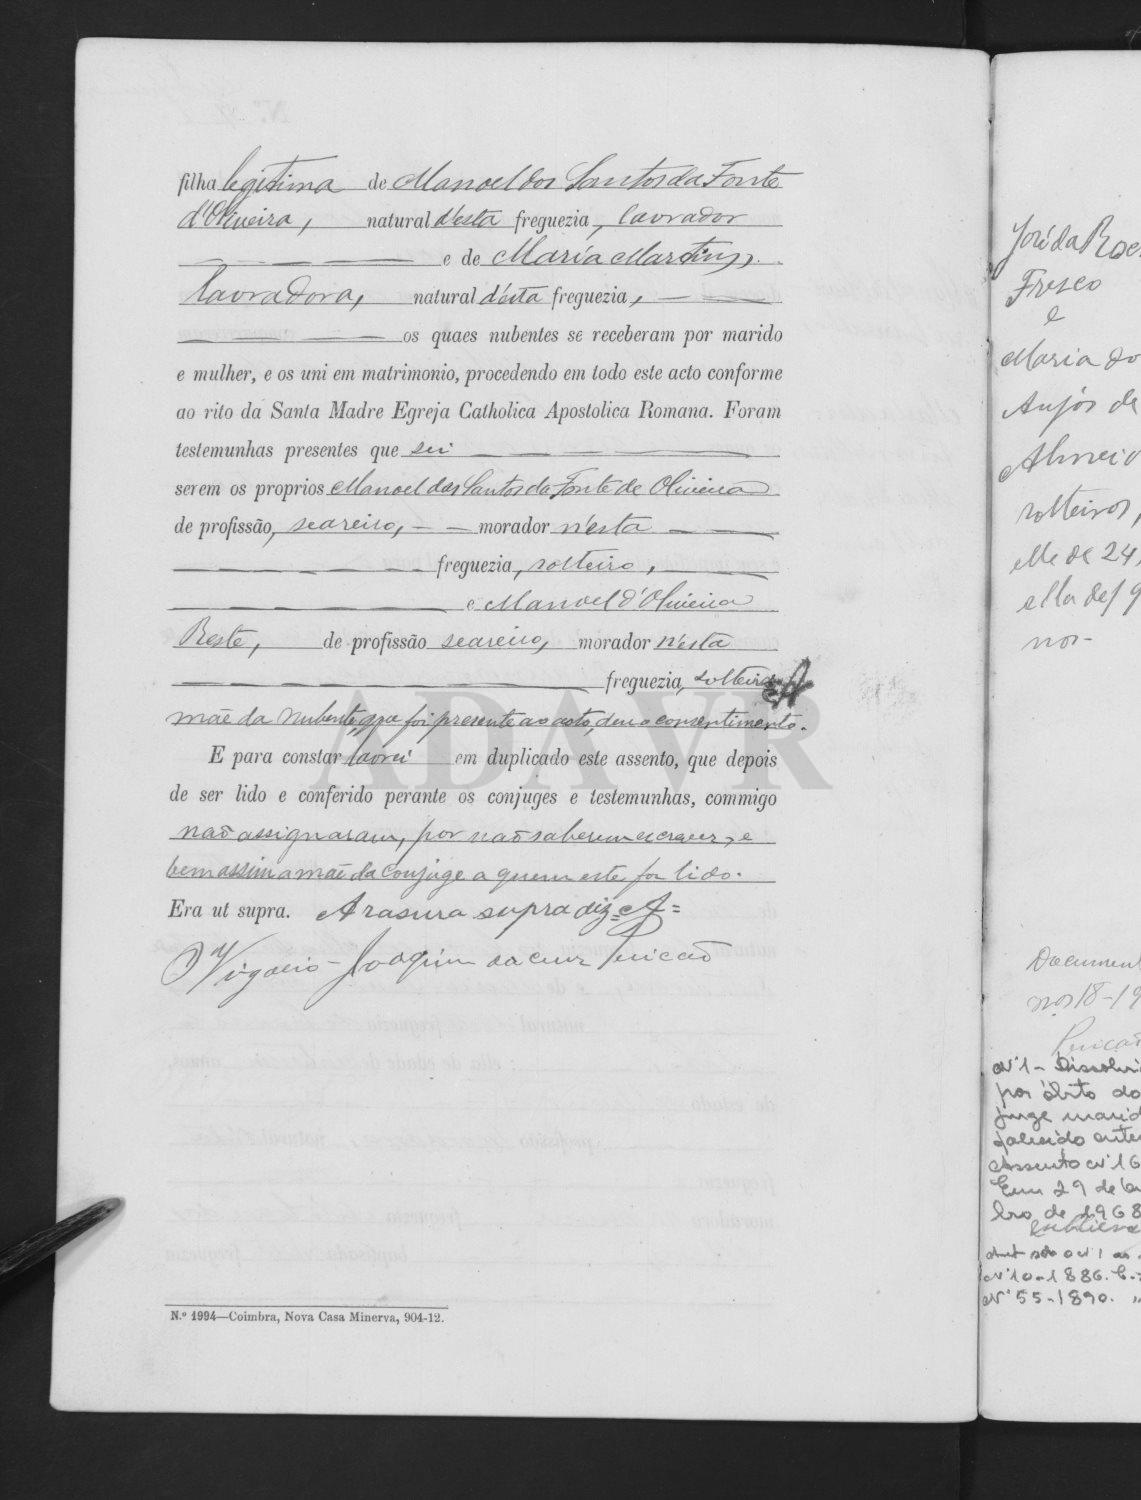 filha legitima de Manoel dos Santos da Fonte
d'Oliveira, natural d'esta freguezia, lavrador
e de Maria Martins,
lavradora, natural d'esta freguezia,
os quaes nubentes se receberam por marido
e mulher, e os uni em matrimonio, procedendo em todo este acto conforme
ao rito da Santa Madre Egreja Catholica Apostolica Romana. Foram
testemunhas presentes que sei
serem os proprios Manoel dos Santos da Fonte de Oliveira
de profissão, seareiro, morador n'esta
freguezia, solteiro,
e Manoel d'Oliveira
Reste, de profissão seareiro, morador n'esta
freguezia, solteiro. A
mãe da nubente, que foi presente ao acto, deu o consentimento.
E para constar lavrei em duplicado este assento, que depois
de ser lido e conferido perante os conjuges e testemunhas, commigo
não assignaram, por não saberem escrever, e
bem assim a mãe da conjuge a quem este foi lido.
Era ut supra. A rasura supra diz = A =
O Vigario - Joaquim da Cruz
ADAVR
N.º 1994—Coimbra, Nova Casa Minerva, 904-12.
José da Roc
Fresco
e
Maria do
Anjos de
Almeid
solteiros,
elle de 24,
ella de 19
nos-
Document
nos 18-19
Nº 1 - Dissolvi
por óbito do
juge marid
falecido
Assento nº 16
Em 29 de
bro de 1968
Nº 10-1886.
Nº 55-1890. "